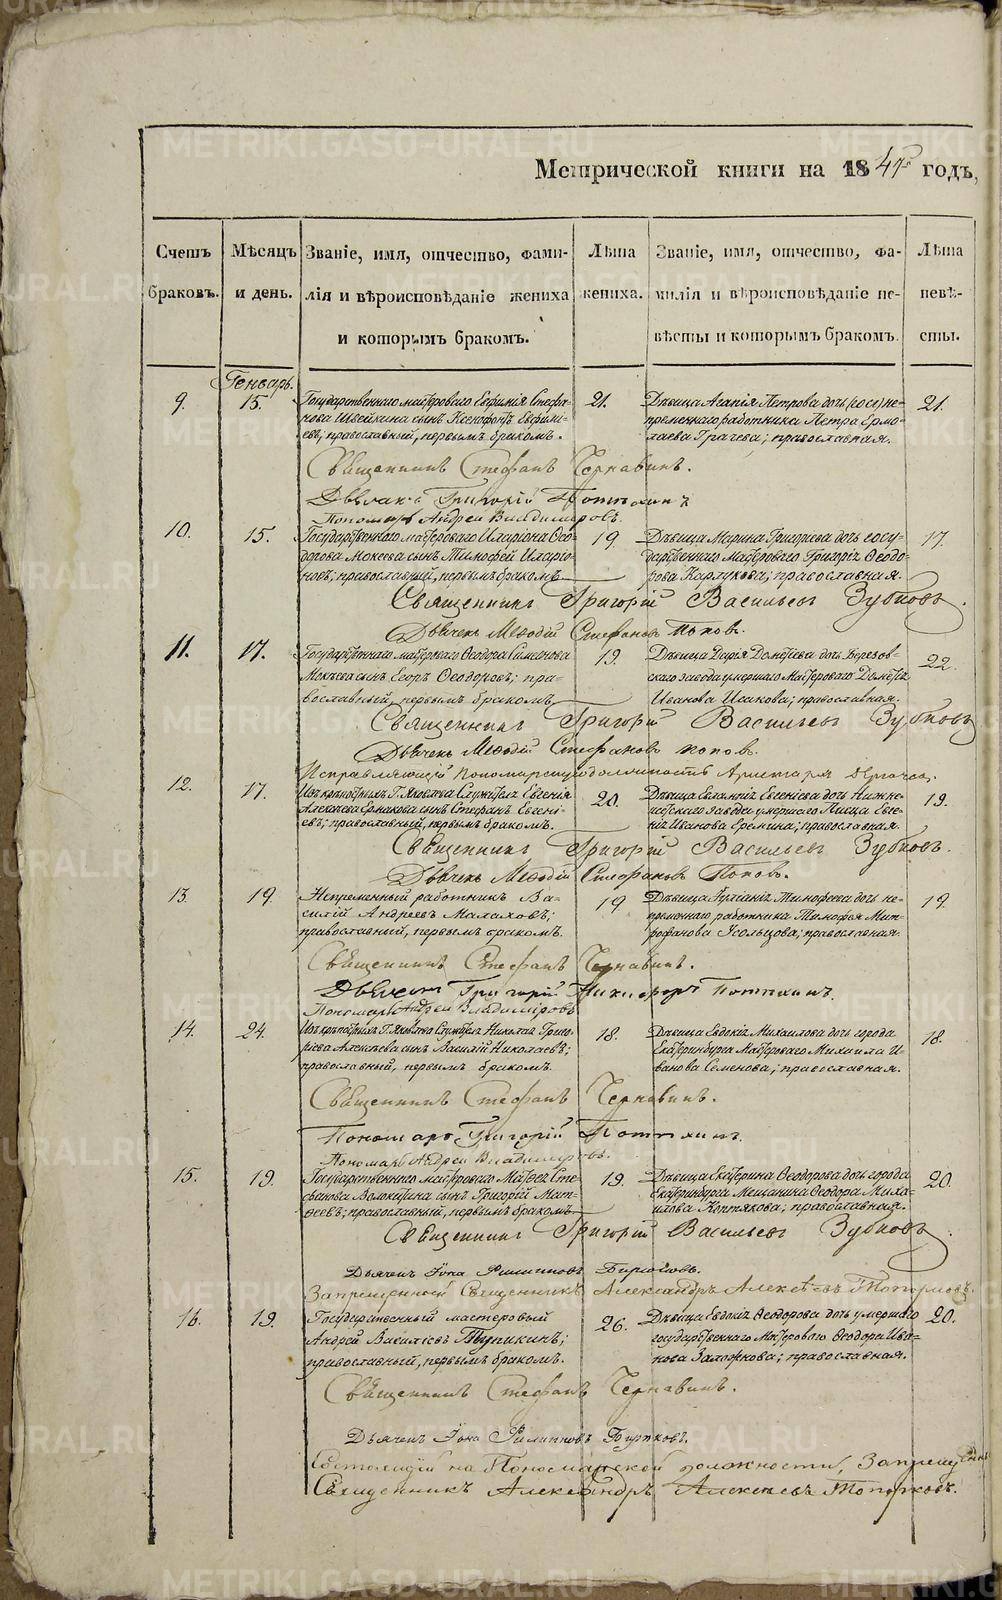 Метрической книги на 1847 годъ,
Счетъ браковъ.
Мѣсяцъ и день.
Званіе, имя, отчество, фами-
лія и вѣроисповѣданіе жениха
и которымъ бракомъ.
Лѣта жениха.
Званіе, имя, отчество, фа-
милія и вѣроисповѣданіе не-
вѣсты и которымъ бракомъ.
Лѣта невѣ-
сты.
Генварь.
9. 15.
Государственнаго мастероваго Евфимія Стефа-
нова Швейкина сынъ Ксенофонтъ Евфимі-
евъ, православный, первымъ бракомъ.
21.
Дѣвица Агапія Петрова дочь (гос) не-
премѣннаго работника Петра Ермо-
лаева Грачева; православная.
21.
Священникъ Стефанъ Чернавинъ.
Дьячекъ Григорій Потехинъ
Пономарь Андрей Владиміровъ.
10. 15.
Государственнаго мастероваго Иларіона Ѳео-
дорова Мокѣева сынъ Тимофей Иларіо-
новъ; православный, первымъ бракомъ
19.
Дѣвица Марина Григорьева дочь госу-
дарственнаго мастероваго Григорія Ѳеодо-
рова Карлукова; православная.
17.
Священникъ Григорій Васильевъ Зубковъ.
Дьячекъ Меѳодій Стефановъ Поповъ.
11. 17.
Государственнаго мастероваго Ѳеодора Симеонова
Мокѣева сынъ Егоръ Ѳеодоровъ; пра-
вославный, первымъ бракомъ
19.
Дѣвица Дарія Дометіева дочь Березов-
скаго завода умершаго мастероваго Дометія
Иванова Исакова; православная.
22.
Священникъ Григорій Васильевъ Зубковъ
Дьячекъ Меѳодій Стефановъ Поповъ.
Исправляющій пономарскую должность
12. 17.
Изъ крѣпостныхъ Г. Яковлева служителя Евгенія
Алексѣева Ермакова сынъ Стефанъ Евгені-
евъ; православный, первымъ бракомъ.
20.
Дѣвица Евлампія Евгеніева дочь Нижне-
исетскаго завода умершаго Евге-
нія Иванова Еремина; православная.
19.
Священникъ Григорій Васильевъ Зубковъ.
Дьячекъ Меѳодій Стефановъ Поповъ.
13. 19
Непремѣнный работникъ Ва-
силій Андреевъ Малаховъ;
православный, первымъ бракомъ.
19
Дѣвица Іуліанія Тимофеева дочь не-
премѣннаго работника Тимофея Мит-
рофанова Усольцова; православная.
19.
Священникъ Стефанъ Чернавинъ.
Дьячекъ Григорій Никифоръ Потехинъ.
Пономарь Андрей Владиміровъ
14. 24.
Изъ крѣпостныхъ Г. Яковлева служителя Николая Григо-
рьева Алексѣева сынъ Василій Николаевъ;
православный, первымъ бракомъ.
18.
Дѣвица Евдокія Михаилова дочь города
Екатеринбурга мастероваго Михаила И-
ванова Семенова; православная.
18.
Священникъ Стефанъ Чернавинъ.
Пономарь Григорій Потехинъ.
Пономарь Андрей Владиміровъ.
15. 19.
Государственнаго мастероваго Матѳея Сте-
фанова Волокитина сынъ Григорій Мат-
ѳеевъ; православный, первымъ бракомъ
19.
Дѣвица Екатерина Ѳеодорова дочь города
Екатеринбурга мещанина Ѳеодора Миха-
илова Коптякова; православная.
20.
Священникъ Григорій Васильевъ Зубковъ
Дьячекъ Іона Филипповъ Бирюковъ.
Запрещенный Священникъ Александръ Алексѣевъ Топорковъ.
16. 19.
Государственный мастеровый
Андрей Василіевъ Тупикинъ;
православный, первымъ бракомъ.
26.
Дѣвица Евдокія Ѳеодорова дочь умершаго
государственнаго мастероваго Ѳеодора Ива-
нова Заложнова; православная.
20.
Священникъ Стефанъ Чернавинъ.
Дьячекъ Іона Филипповъ Бирюковъ.
Состоящій на Пономарской должности, Запрещенный
Священникъ Александръ Алексѣевъ Топорковъ.
METRIKI.GASO-URAL.RU